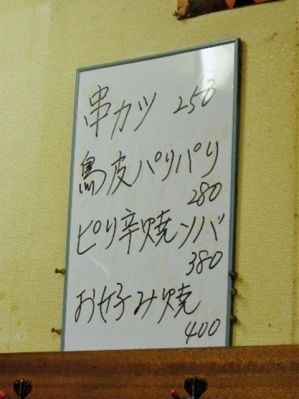 串カツ 250
鳥皮パリパリ
280
ピリ辛焼ソバ
380
お好み焼
400